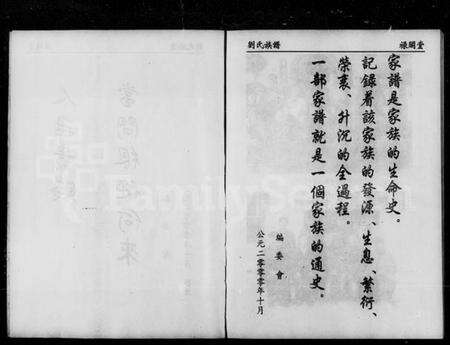 劉氏族譜
祿閣堂
家譜是家族的生命史。
記録着該家族的發源、生息、繁衍、
榮衰、升沉的全過程。
一部家譜就是一個家族的通史。
編委會
公元二零零零年十月
FamilySearch